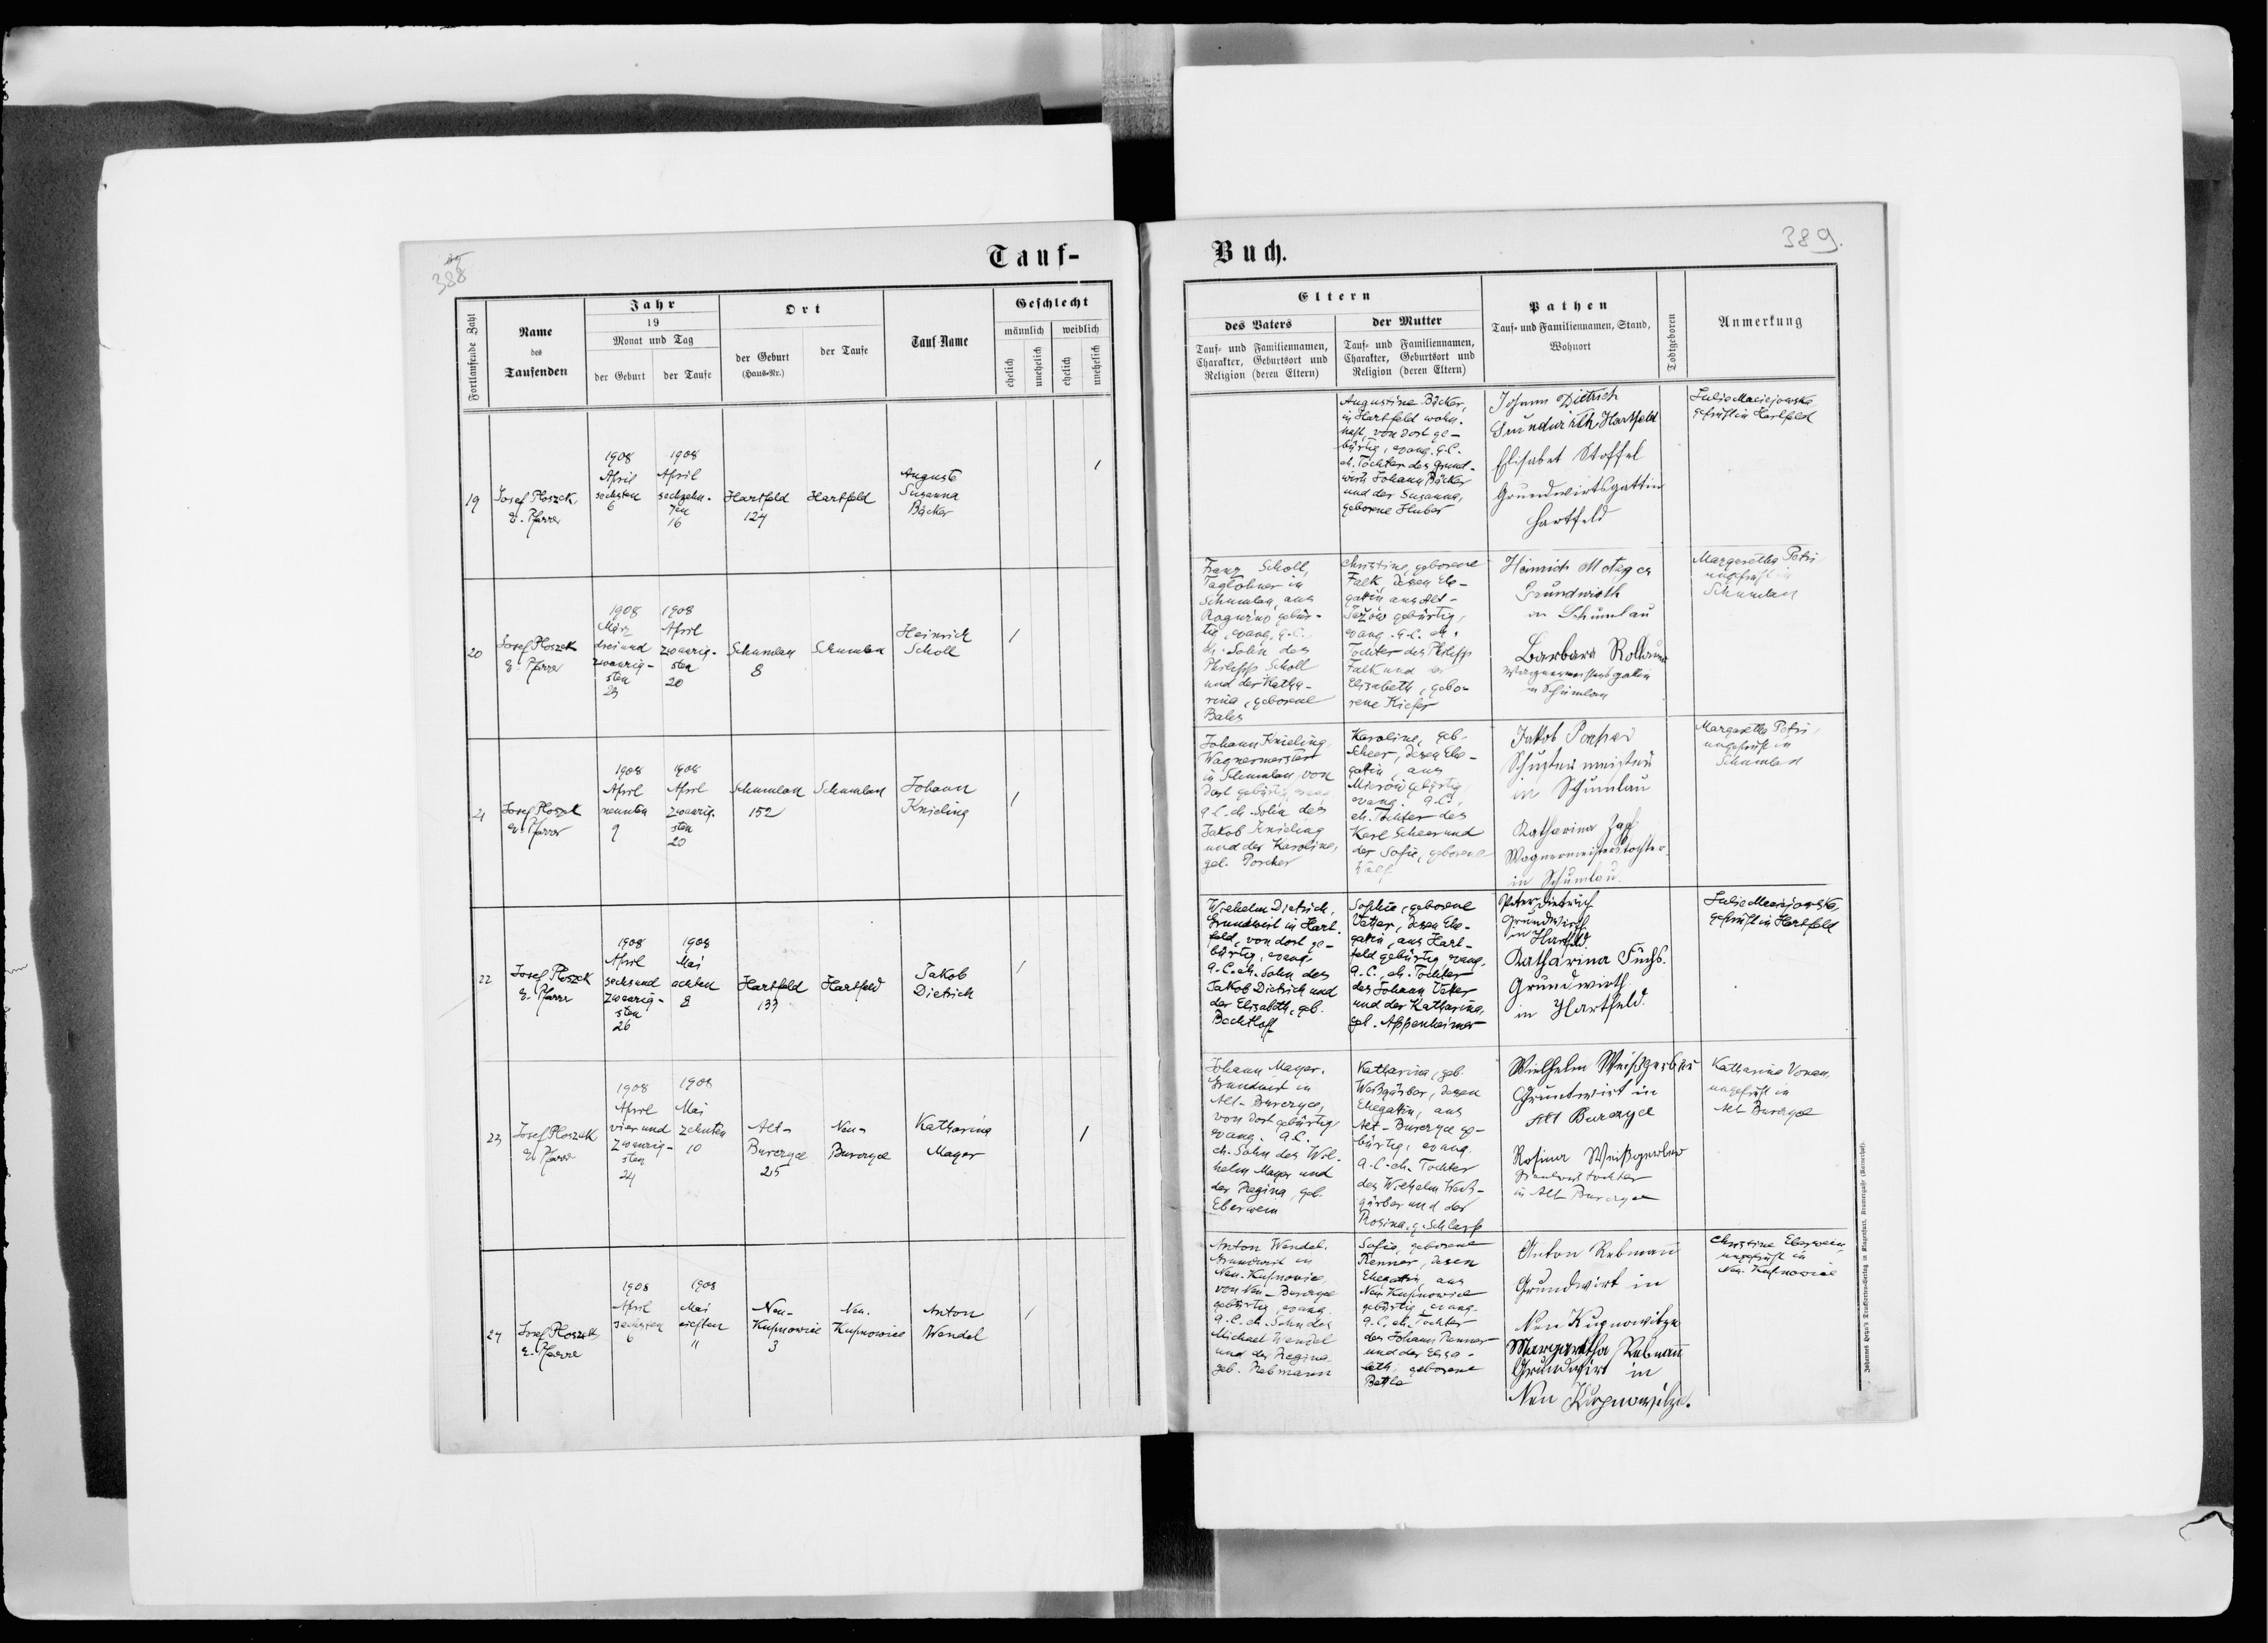 388
Tauf-
Fortlaufende Zahl
Name
des
Taufenden
Jahr
19
Monat und Tag
der Geburt
der Taufe
Ort
der Geburt
(Haus-Nr.)
der Taufe
Tauf-Name
Geschlecht
männlich
weiblich
ehelich
unehelich
ehelich
unehelich
19
Josef Ploszek,
E. Pfarrer
1908
April
sechsten
6
1908
April
sechzehn-
ten
16
Hartfeld
124
Hartfeld
Auguste
Susanna
Bäcker
1
20
Josef Ploszek
E. Pfarrer
1908
März
drei und
zwanzig-
sten
23
1908
April
zwanzig-
sten
20
Schumlau
8
Schumlau
Heinrich
Scholl
1
21
Josef Ploszek
E. Pfarrer
1908
April
neunten
9
1908
April
zwanzig-
sten
20
Schumlau
152
Schumlau
Johann
Knieling
1
22
Josef Ploszek
E. Pfarrer
1908
April
sechsund
zwanzig-
sten
26
1908
Mai
achten
8
Hartfeld
133
Hartfeld
Jakob
Dietrich
1
23
Josef Ploszek
E. Pfarrer
1908
April
vier und
zwanzig-
sten
24
1908
Mai
zehnten
10
Alt-
Burczyce
25
Neu-
Burczyce
Katharina
Mayer
1
24
Josef Ploszek
E. Pfarrer
1908
April
sechsten
6
1908
Mai
elften
11
Neu-
Kupnowice
3
Neu-
Kupnowice
Anton
Wendel
1
Buch.
389.
Eltern
des Vaters
Tauf- und Familiennamen,
Charakter, Geburtsort und
Religion (deren Eltern)
der Mutter
Tauf- und Familiennamen,
Charakter, Geburtsort und
Religion (deren Eltern)
Pathen
Tauf- und Familiennamen, Stand,
Wohnort
Todtgeboren
Anmerkung
Augustine Bäcker,
in Hartfeld wohn-
haft, von dort ge-
bürtig, evang. A.C.
eh. Tochter des Grund-
wirts Johann Bäcker
und der Susanna,
geborene Huber
Johann Dietrich
Grundwirth Hartfeld
Elisabet Stoffel
Grundwirtsgattin
Hartfeld
Julie Maciejowska
geprüft in Hartfeld
Franz Scholl,
Taglöhner in
Schumlau, aus
Roguźno gebür-
tig, evang. A.C.,
eh. Sohn des
Philipp Scholl
und der Katha-
rina, geborene
Christine, geborene
Falk, dessen Ehe-
gattin aus Alt-
Jażów gebürtig,
evang. A.C. eh.
Tochter des Philipp
Falk und der
Elisabeth, gebo-
rene Kiefer
Heinrich
Grundwirth
in Schumlau
Barbara
Wagnermeistersgattin
in Schumlau
Margaretha Petri
ungeprüft in
Schumlau
Johann Knieling,
Wagnermeister
in Schumlau, von
dort gebürtig, evang.
A.C. eh. Sohn des
Jakob Knieling
und der Karoline,
geb. Porcher
Karoline, geb.
Scheer, dessen Ehe-
gattin, aus
gebürtig,
evang. A.C.,
eh. Tochter des
Karl Scheer und
der Sofie, geborene
Jakob
Schustermeister
in Schumlau
Katharina Zapf
Wagnermeisterstochter
in Schumlau.
Margaretha Petri,
ungeprüft in
Schumlau
Wilhelm Dietrich,
Grundwirt in Hart-
feld, von dort ge-
bürtig, evang.
A.C. eh. Sohn des
Jakob Dietrich und
der Elisabeth, geb.
Bechtloff
Sophie, geborene
Vetter, dessen Ehe-
gattin, aus Hart-
feld gebürtig, evang.
A.C., eh. Tochter
des Johann Vetter
und der Katharina,
geb. Appenheimer
Peter Dietrich
Grundwirth
in Hartfeld.
Katharina Fuchs.
Grundwirth
in Hartfeld.
Julie Maciejowska,
geprüft in Hartfeld
Johann Mayer,
Grundwirt in
Alt-Burczyce,
von dort gebürtig
evang. A.C.
eh. Sohn des Wil-
helm Mayer und
der Regina, geb.
Eberwein
Katharina, geb.
Weißgärber, dessen
Ehegattin, aus
Alt-Burczyce ge-
bürtig, evang.
A.C. eh. Tochter
des Wilhelm Weiß-
gärber und der
Rosina, g. Schlapp
Wilhelm Weißgerber
Grundwirt in
Alt Burczyce
Rosina Weißgerber
Grundwirtstochter
in Alt Burczyce
Katharina
ungeprüft in
Alt Burczyce
Anton Wendel,
Grundwirt in
Neu-Kupnowice,
von Neu-Burczyce
gebürtig, evang.
A.C. eh. Sohn des
Michael Wendel
und der Regina
geb. Rebmann
Sofie, geborene
Renner, dessen
Ehegattin, aus
Neu-Kupnowice
gebürtig, evang.
A.C. eh. Tochter
des Johann Renner
und der Elisa-
beth, geborene
Anton Rebmann
Grundwirt in
Neu Kupnowitze
Margaretha Rebmann
Grundwirt in
Neu Kupnowitze.
Christine Eberwein
ungeprüft in
Neu-Kupnowice